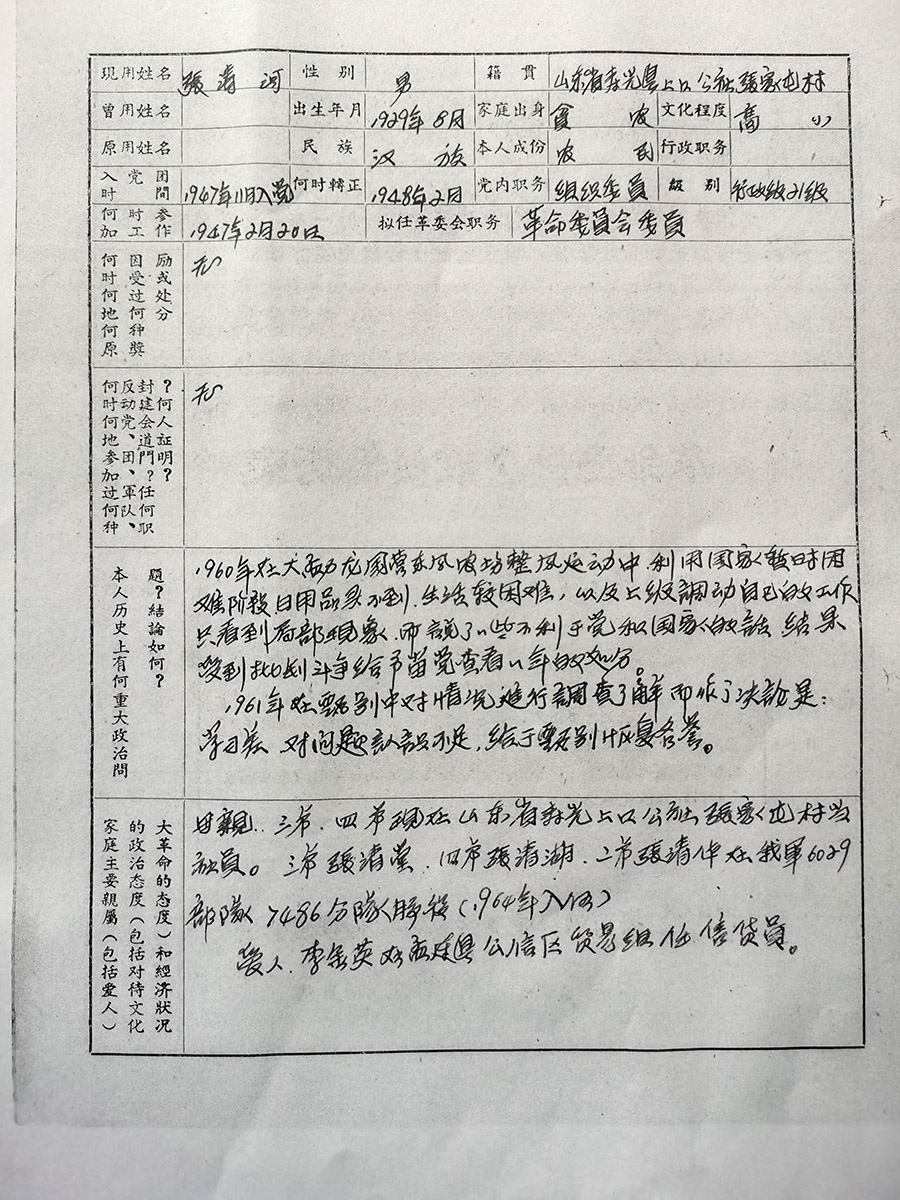 現用姓名 張清河 性別 男 籍貫 山东省寿光县上口公社張家屯村
曾用姓名 出生年月 1929年8月 家庭出身 貧农 文化程度 高小
原用姓名 民族 汉族 本人成份 农民 行政职务
入党团时間 1947年11月入党 何时轉正 1948年2月 党内职务 组织委員 級别 行政级21级
何时参加工作 1947年2月20日 拟任革委会职务 革命委員会委員
何时何地何原因受过何种獎励或处分 无
何时何地参加过何种反动党、团、軍队、封建会道門？任何职？何人証明？ 无
本人历史上有何重大政治問題？結論如何？
1960年在大 国营东风农场整风运动中利用国家暂时困
难阶段日用品买不到.生活較困难，以及上級調动自己的工作
只看到局部現象.而說了一些不利于党和国家的話 结果
受到批判斗争给予留党查看一年的处分。
1961年在甄别中对情况進行調查了解而作了决 是：
学习差 对问题認識不足，给于甄别恢复名誉。
家庭主要親屬（包括爱人）的政治态度（包括对待文化大革命的态度）和經济狀况
母親.三弟.四弟現在山东省寿光上口公社張家屯村当
社員。三弟張清 .四弟張清湖.二弟張清 在我軍6029
部隊7486分隊服役（1964年入伍）
爱人.李 英在 县公 区贸易组任信贷員。